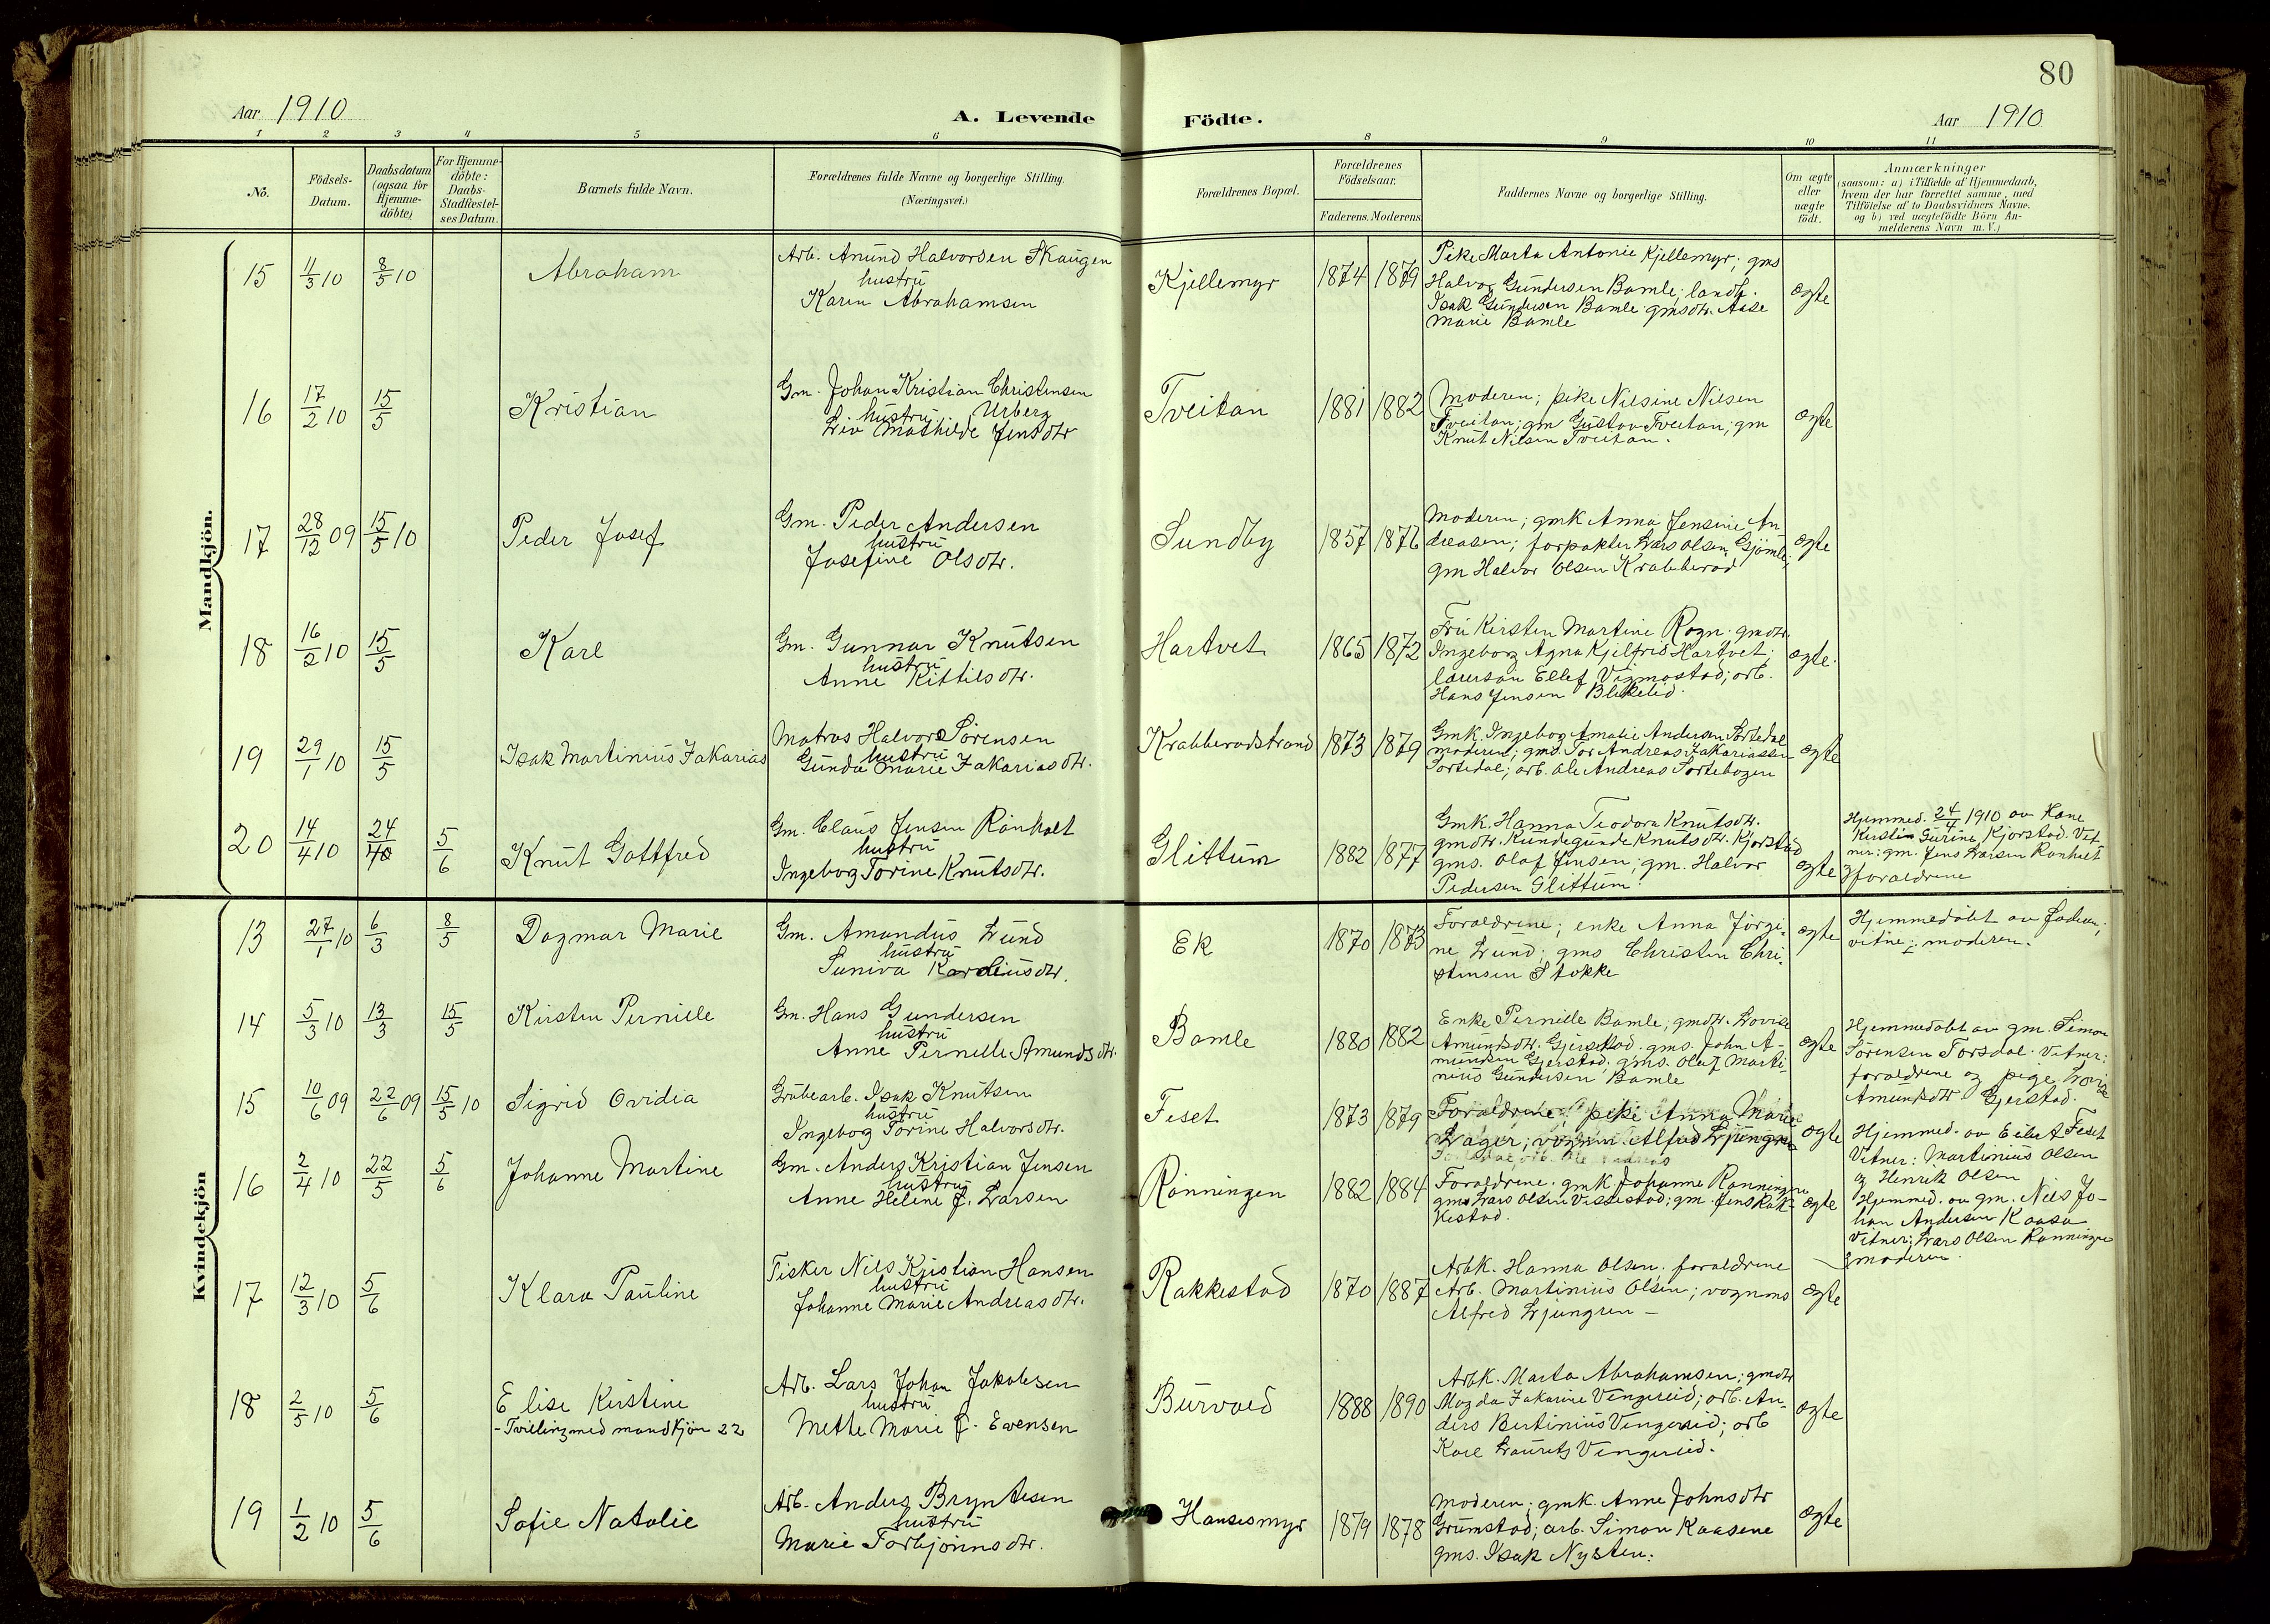 80
Aar 1910
A. Levende
Födte.
Aar 1910
1 2 3 4 5 6 8 9 10 11
No.
Födsels-
Datum.
Daabsdatum
(ogsaa for
Hjemme-
döbte)
For Hjemme-
döbte:
Daabs-
Stadfæstel-
ses Datum.
Barnets fulde Navn.
Forældrenes fulde Navne og borgerlige Stilling.
(Næringsvei.)
Forældrenes Bopæl.
Forældrenes
Födselsaar.
Faderens. Moderens
Faddernes Navne og borgerlige Stilling.
Om ægte
eller
uægte
födt.
Anmærkninger
(saasom: a) i Tilfælde af Hjemmedaab,
hvem der har forrettet samme, med
Tilföielse af to Daabsvidners Navne,
og b) ved uægtefödte Börn An-
melderens Navn m.V.)
Mandkjön.
15 11/3 10 8/5 10 Abraham
Arb. Anund Halvorsen Skaugen
hustru
Karen Abrahamsen
Kjellemyr 1874 1879
Pike Marta Antonie Kjellemyr; gms
Halvor Gundersen Bamle; landh.
Isak Gundersen Bamle gmsdtr. Aase
Marie Bamle
ægte
16 17/2 10 15/5 Kristian
Gm. Johan Kristian Christensen
hustru Urberg
Liv Mathilde Jensdtr
Tveitan 1881 1882
Moderen; pike Nilsine Nilsen
Tveitan; gm Gustav Tveitan; gm
Knut Nilsen Tveitan.
ægte
17 28/12 09 15/5 10 Peder Josef
Gm. Peder Andersen
hustru
Josefine Olsdtr.
Sundby 1857 1876
Moderen; gmk Anna Jensine An
dreasen; forpakter Lars Olsen Gjömle;
gm Halvor Olsen Krabberød
ægte
18 16/2 10 15/5 Karl
Gm. Gunnar Knutsen
hustru
Anne Kittilsdtr.
Hartvet 1865 1872
Fru Kirsten Martine Rogn. gmdtr.
Ingeborg Agna Kjelfrid Hartvet;
lærersøn Ellef Vigmostad; arb.
Hans Jensen Blekelid.
ægte.
19 29/1 10 15/5 Isak Martinius Zakarias
Matros Halvor Sörensen
hustru
Gunda Marie Zakariasdtr.
Krabberødstrand 1873 1879
Gmk. Ingebog Amalie Andersen Sortedal
moderen; gms. Tor Andreas Zakariassen
Sortedal; arb. Ole Andreas Sortebogen
ægte
20 14/4 10 24/4 5/6 Knut Gottfred
Gm. Claus Jensen Rönholt
hustru
Ingebog Torine Knutsdtr.
Glittum 1882 1877
Gmk. Hanna Teodora Knutsdtr.
gmdtr. Kundegunde Knutsdtr. Kjørstad
gms. Olaf Jensen; gm. Halvor
Pedersen Glittum.
ægte
Hjemmed. 24/4 1910 av Kone
Kirstin Gurine Kjørstad. Vit
ner: gm. Jens Larsen Rönholt
og forældrene
Kvindekjön
13 27/1 10 6/3 8/5 Dagmar Marie
Gm. Amandus Lund
hustru
Suniva Karoliusdtr.
Ek 1870 1873
Forældrene; enke Anna Jörgi-
ne Lund; gms Christen Chri-
stensen Stokke
ægte
Hjemmedöbt av faderen;
vitne: moderen.
14 5/3 10 13/3 15/5 Kirsten Pernille
Gm. Hans Gundersen
hustru
Anne Pernille Amundsdtr.
Bamle 1880 1882
Enke Pernille Bamle; gmdtr. Lovise
Amundsdtr. Gjerstad. gms. John A-
mundsen Gjerstad; gms. Oluf Marti-
nius Gundersen Bamle
ægte
Hjemmedöbt av gm. Simon
Sörensen Torsdal. Vitner:
forældrene og pige Lovise
Amundsdtr Gjerstad.
15 10/6 09 22/6 09 15/5 10 Sigrid Ovidia
Grubearb. Isak Knutsen
hustru
Ingebog Torine Halvorsdtr.
Feset 1873 1879
Forældrene; pike Anna Marie
Lager; vognm Alfred Ljungren
ægte
Hjemmed. av Eilert Feset
Vitner: Martinius Olsen
og Henrik Olsen
16 2/4 10 22/5 5/6 Johanne Martine
Gm. Anders Kristian Jensen
hustru
Anne Helene f. Larsen
Rönningen 1882 1884
Forældrene. gmk Johanne Rønningen
gms Lars Olsen Vissestad; gm. Jens Rak-
kestad.
ægte
Hjemmed. av gm. Nils Jo-
han Andersen Kaasa
Vitner: Lars Olsen Rønningen
og moderen.
17 12/3 10 5/6 Klara Pauline
Fisker Nils Kristian Hansen
hustru
Johanne Marie Andreasdtr.
Rakkestad 1870 1887
Arbk. Hanna Olsen. forældrene
Arb. Martinius Olsen; vognms
Alfred Ljungren –
ægte
18 2/5 10 5/6 Elise Kirstine
- Tvilling med mandkjön 22
Arb. Lars Johan Jakobsen
hustru
Mette Marie f. Evensen
Burvold 1888 1890
Arbk. Marta Abrahamsen; gmdtr
Magda Zakarine Vingereid; arb. An-
ders Bertinius Vingereid; arb
Karl Lauritz Vingereid.
ægte
19 1/2 10 5/6 Sofie Natalie
Arb. Anders Bryntesen
hustru
Marie Torbjörnsdtr.
Hansesmyr 1879 1878
Moderen; gmk. Anne Johnsdtr
Grumstad; arb. Simon Kaasene
gms. Isak Nysten.
ægte